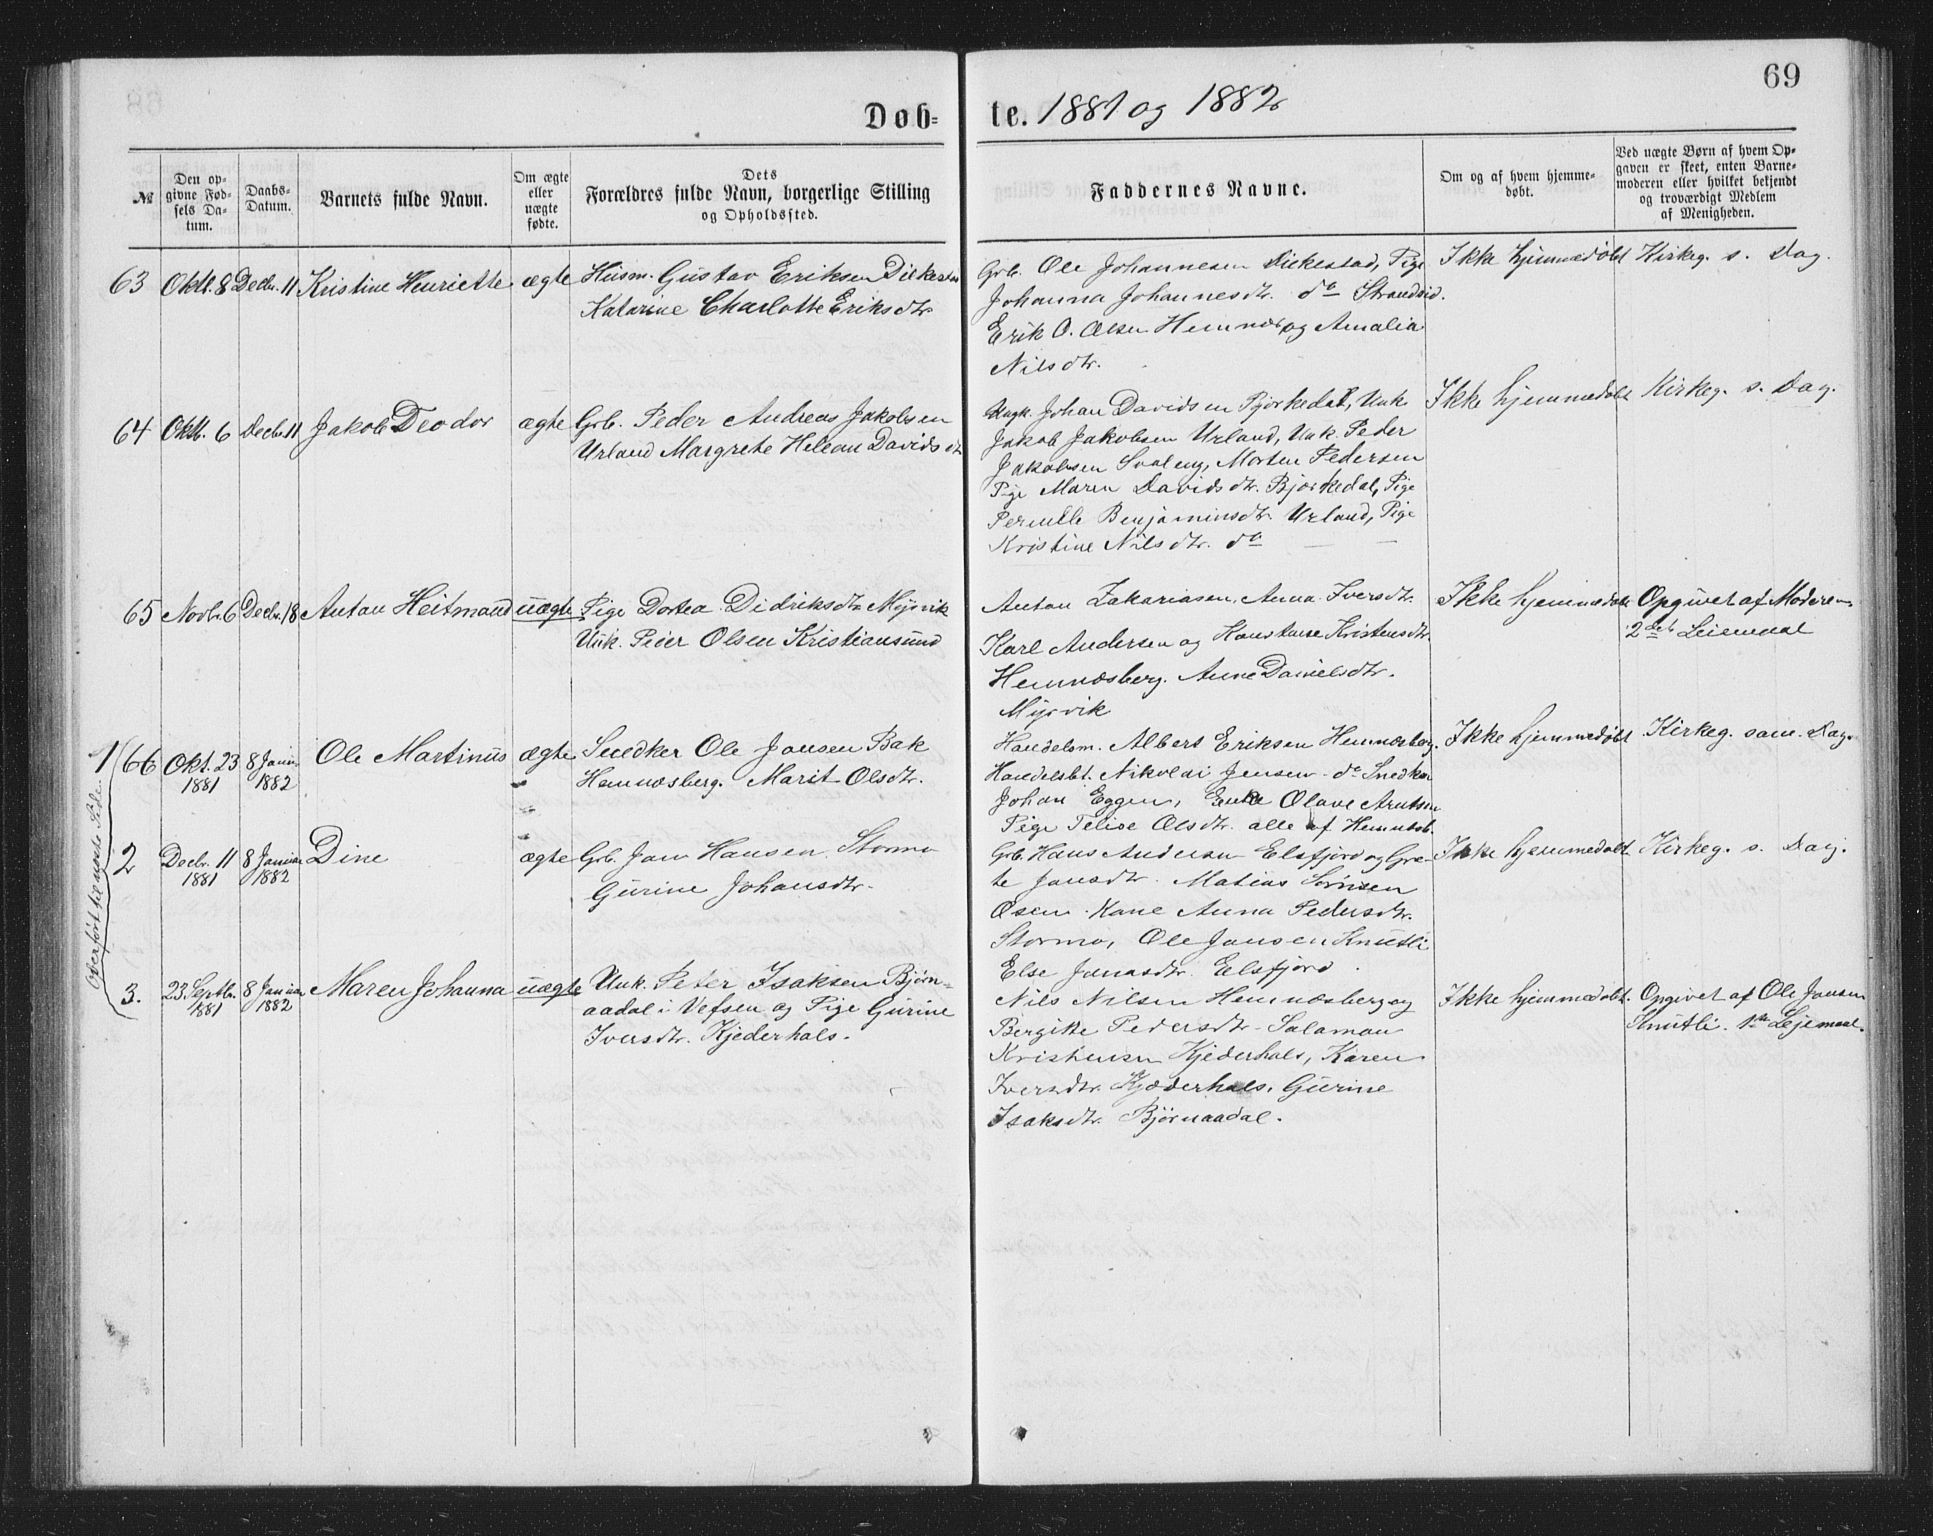 69
Døb- te. 1881 og 1882
№
Den op-
givne Fød-
sels Da-
tum.
Daabs-
Datum.
Barnets fulde Navn.
Om ægte
eller
uægte
fødte.
Dets
Forældres fulde Navn, borgerlige Stilling
og Opholdssted.
Faddernes Navne.
Om og af hvem hjemme-
døbt.
Ved uægte Børn af hvem Op-
gaven er skeet, enten Barne-
moderen eller hvilket bekjendt
og troværdigt Medlem
af Menigheden.
63 Oktl. 8 Decbr. 11 Kristine Henriette ægte Husm. Gustav Eriksen Dilkestad
Katarine Charlotte Eriksdtr
Grb. Ole Johannesen Dilkestad, Pige
Johanna Johannesdtr. do Strandlid.
Erik O. Olsen Hemnes og Amalia
Nilsdtr.
Ikke hjemmedøbt Kirkeg. s. Dag.
64 Oktb. 6 Decbr. 11 Jakob Teodor ægte Grb. Peder Andreas Jakobsen
Urland Margrete Helean Davidsdtr
Ungk. Johan Davidsen Bjørkedal, Unk.
Jakob Jakobsen Urland, Unk. Peder
Jakobsen Svaleng, Morten Pedersen
Pige Maren Davidsdtr. Bjørkedal, Pige
Pernille Benjaminsdtr. Urland, Pige
Kristine Nilsdtr. do — —
Ikke hjemmedøbt Kirkeg. s. Dag.
65 Novb. 6 Decbr. 18 Anton Heitmand uægte Pige Dortea Didriksdtr Myrvik
Unk. Peder Olsen Kristiansund
Anton Zakariasen, Anna Iversdtr.
Karl Andersen og Konstanse Kristensdtr.
Hemnæsberg. Anne Danielsdtr.
Myrvik
Ikke hjemmedøbt Opgivet af Moderen
2det Leiemaal
1 (66 Okt. 23 8 Januar Ole Martinus ægte Snedker Ole Jonsen Bak
1881 1882 Hemnæsberg. Marit Olsdtr.
Handelsm. Albert Eriksen Hemnæsberg.
Handelsbt. Nikolai Jensen do Snedker
Johan Eggen, Enke Olave Arntsen
Pige Telise Olsdtr. alle af Hemnesb.
Ikke hjemmedøbt Kirkeg. sam. Dag.
2 Decbr. 11 8 Januar Dine ægte Grb. Jon Hansen Stormo
1881 1882 Gurine Johansdtr.
Grb. Hans Andersen Elsfjord og Gre-
te Jonsdtr. Matias Sørnsen
Osen. Kone Anna Pedersdtr.
Stormo, Ole Jonsen Knutli
Else Jonasdtr. Elsfjord.
Ikke hjemmedøbt Kirkeg. s. Dag.
3. 23. Septb. 8 Januar Maren Johanna uægte Unk. Peter Isaksen Bjørn-
1881 1882 aadal i Vefsen og Pige Gurine
Iversdtr. Kjederhals.
Nils Nilsen Hemnæsberg og
Bergitte Pedersdtr. Salamon
Kristensen Kjederhals, Karen
Iversdtr. Kjæderhals, Gurine
Isaksdtr. Bjørnaadal.
Ikke hjemmedøbt. Opgivet af Ole Jonsen
Knutli. 1ste Lejemaal.